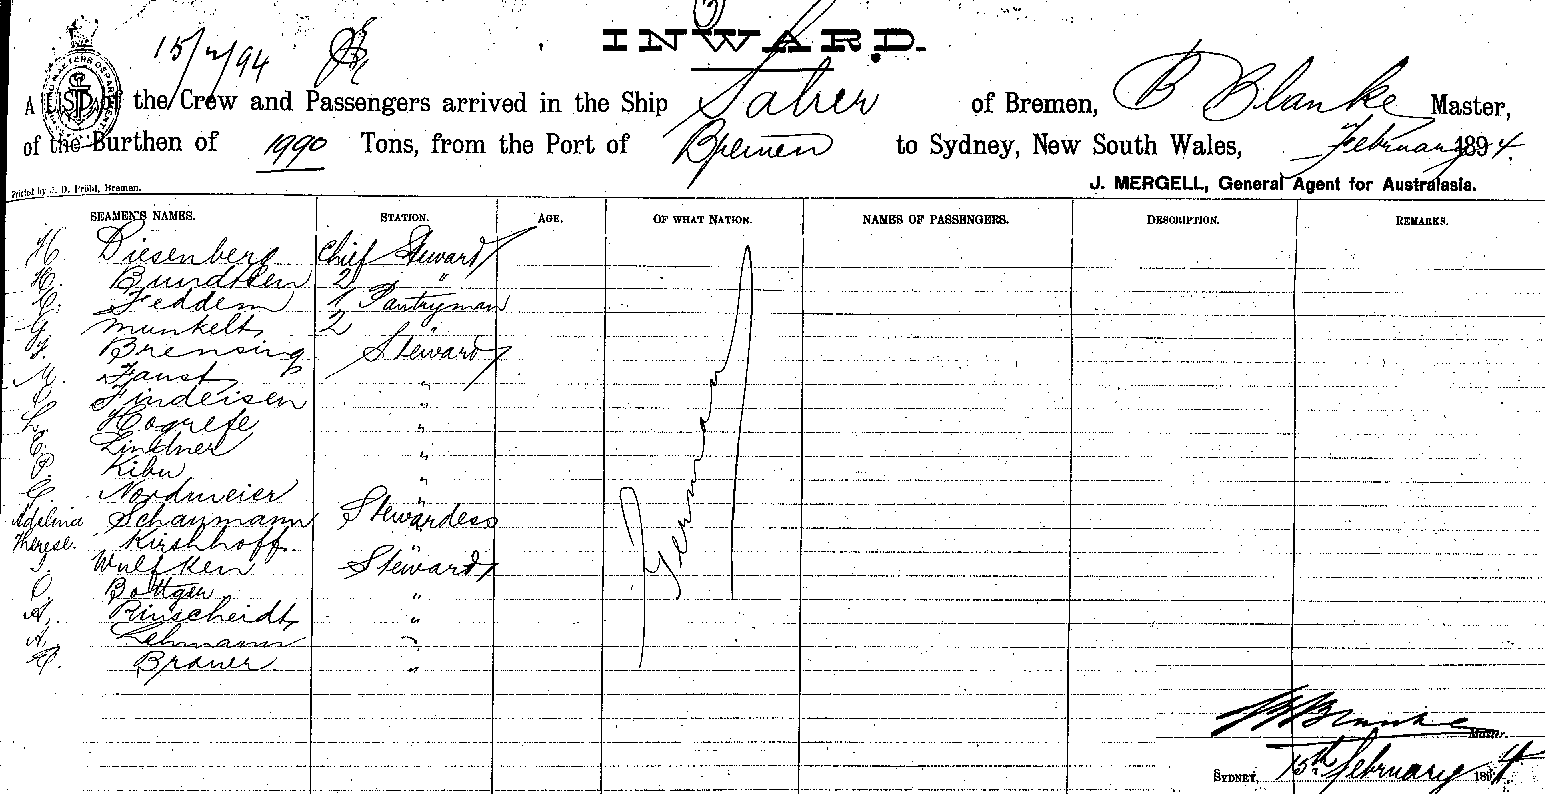 15/2/94
INWARD.
A LIST of the Crew and Passengers arrived in the Ship Salier of Bremen, B Blanke Master,
of the Burthen of 1990 Tons, from the Port of Bremen to Sydney, New South Wales, February 1894.
Printed by J. D. Pröhl, Bremen.
J. MERGELL, General Agent for Australasia.
SEAMEN'S NAMES. STATION. AGE. OF WHAT NATION. NAMES OF PASSENGERS. DESCRIPTION. REMARKS.
H. Diesenberg Chief Steward
H. Bundtken 2 "
C. Feddem 1 Pantryman
G. Munkelt 2 "
Brensing Steward
M. Faust "
C. Findeisen "
L. Hogrefe "
E. Lindner "
P. "
G. Nordmeier "
Adelina Schaumann Stewardess
Therese. Kirshhoff "
Wulfken Steward
O. Bottger "
A. Rinscheidt "
A. Lehmann "
Brauer "
German
Blanke
Master.
SYDNEY, 15th February 1894.